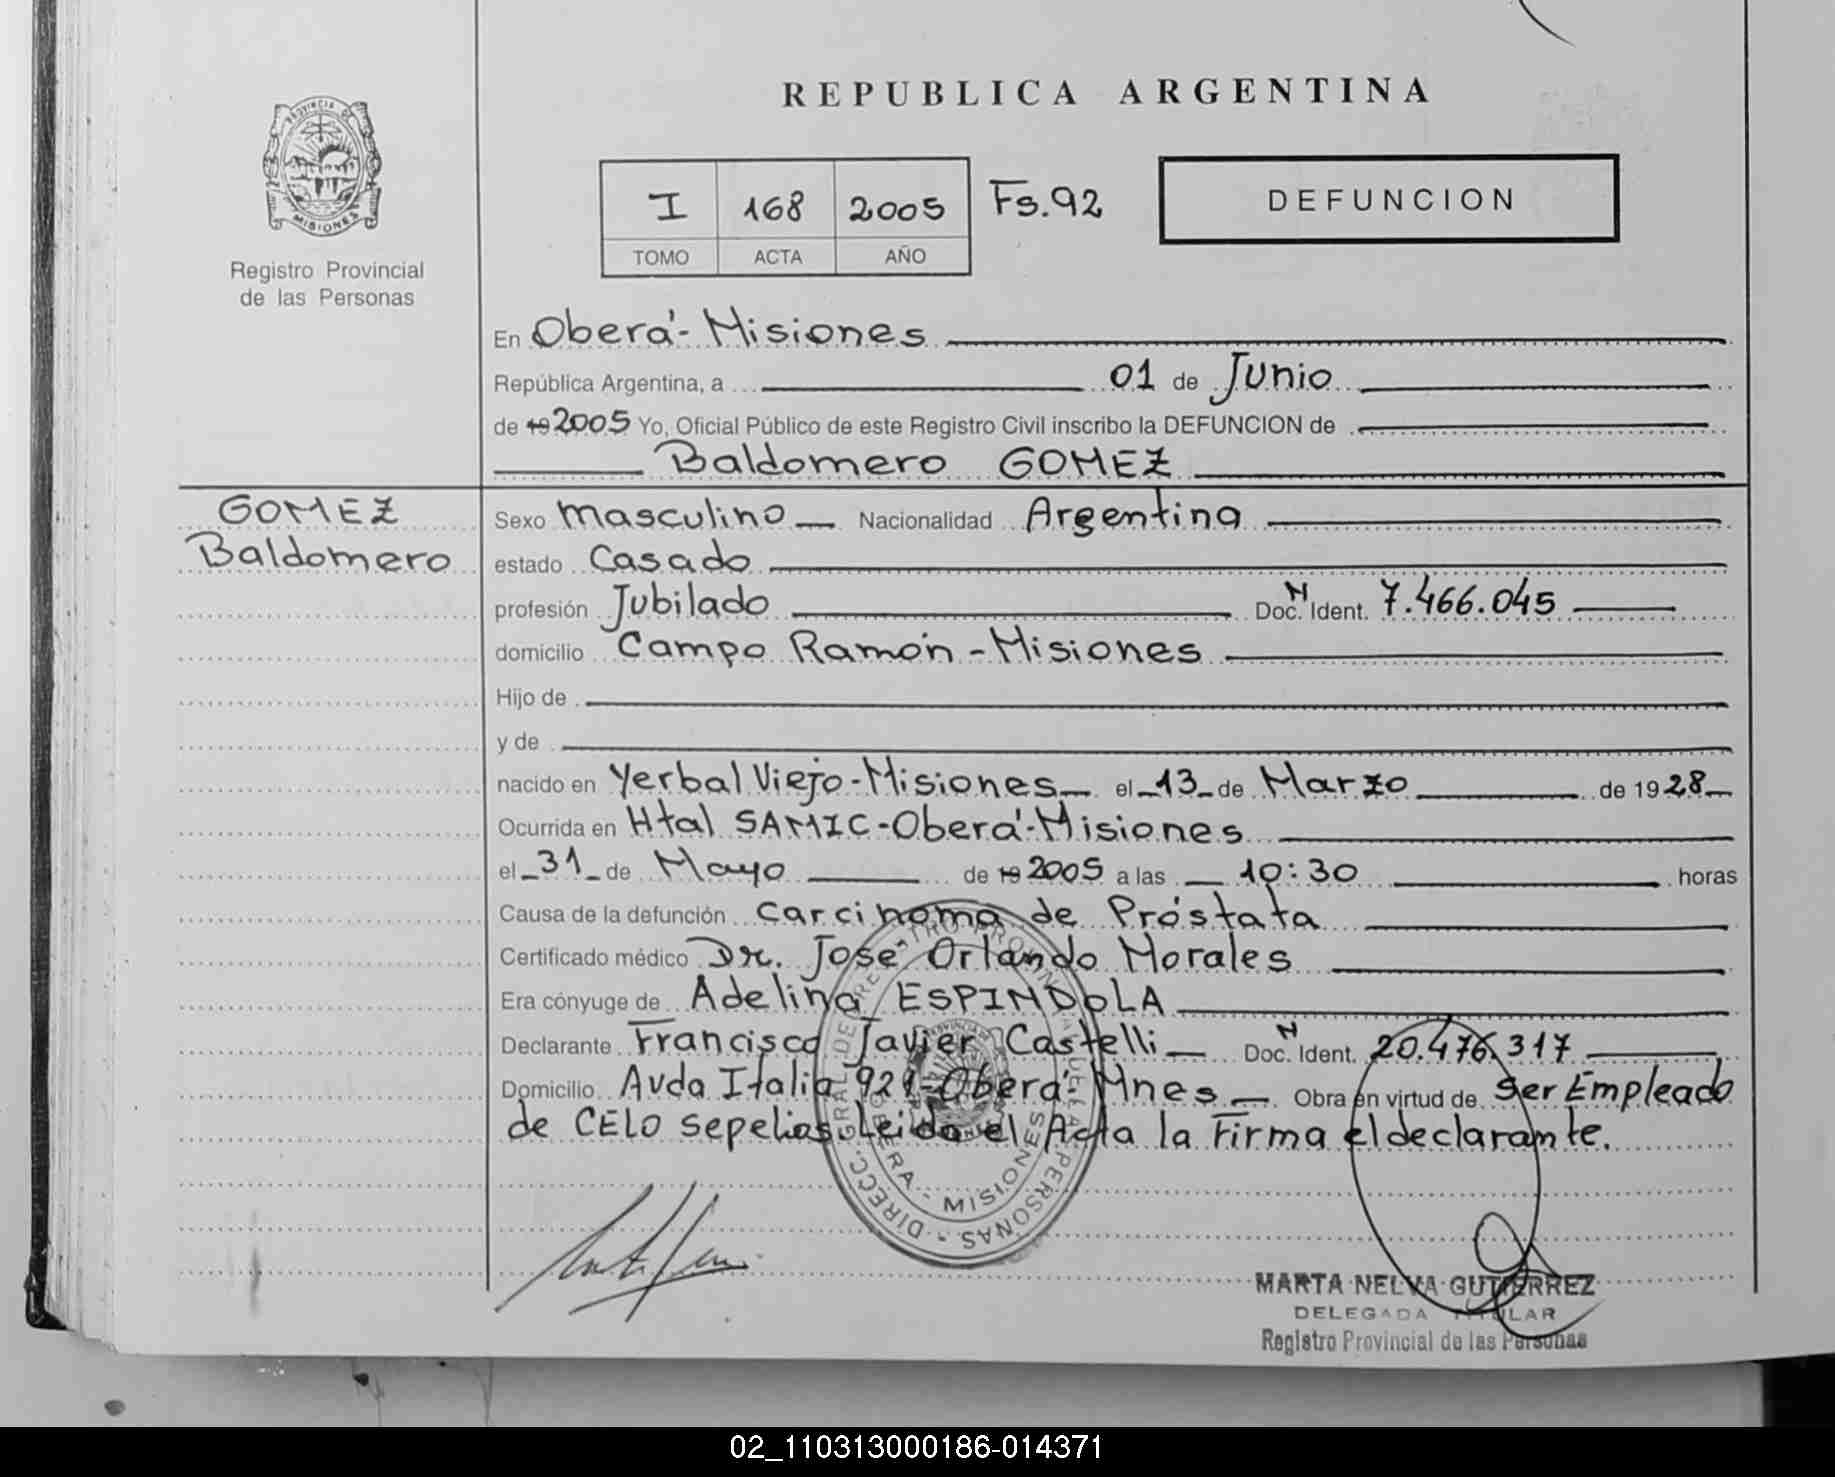 REPUBLICA ARGENTINA
PROVINCIA DE
MISIONES
Registro Provincial
de las Personas
I 168 2005 Fs.92
TOMO ACTA AÑO
DEFUNCION
En Oberá-Misiones
República Argentina, a 01 de Junio
de 19 2005 Yo, Oficial Público de este Registro Civil inscribo la DEFUNCION de
Baldomero GOMEZ
GOMEZ
Baldomero
Sexo Masculino Nacionalidad Argentina
estado Casado
profesión Jubilado Doc. N Ident. 7.466.045
domicilio Campo Ramón-Misiones
Hijo de
y de
nacido en Yerbal Viejo-Misiones el 13 de Marzo de 1928
Ocurrida en Htal SAMIC-Oberá-Misiones
el 31 de Mayo de 19 2005 a las 10:30 horas
Causa de la defunción Carcinoma de Próstata
Certificado médico Dr. José Orlando Morales
Era cónyuge de Adelina ESPINDOLA
Declarante Francisco Javier Castelli Doc. N Ident. 20.476.317
Domicilio Avda Italia 921-Oberá-Mnes Obra en virtud de Ser Empleado
de CELO Sepelios. Leida el Acta la Firma el declarante.
MISIONES
MARTA NELVA GUTIERREZ
DELEGADA TITULAR
Registro Provincial de las Personas
02_110313000186-014371